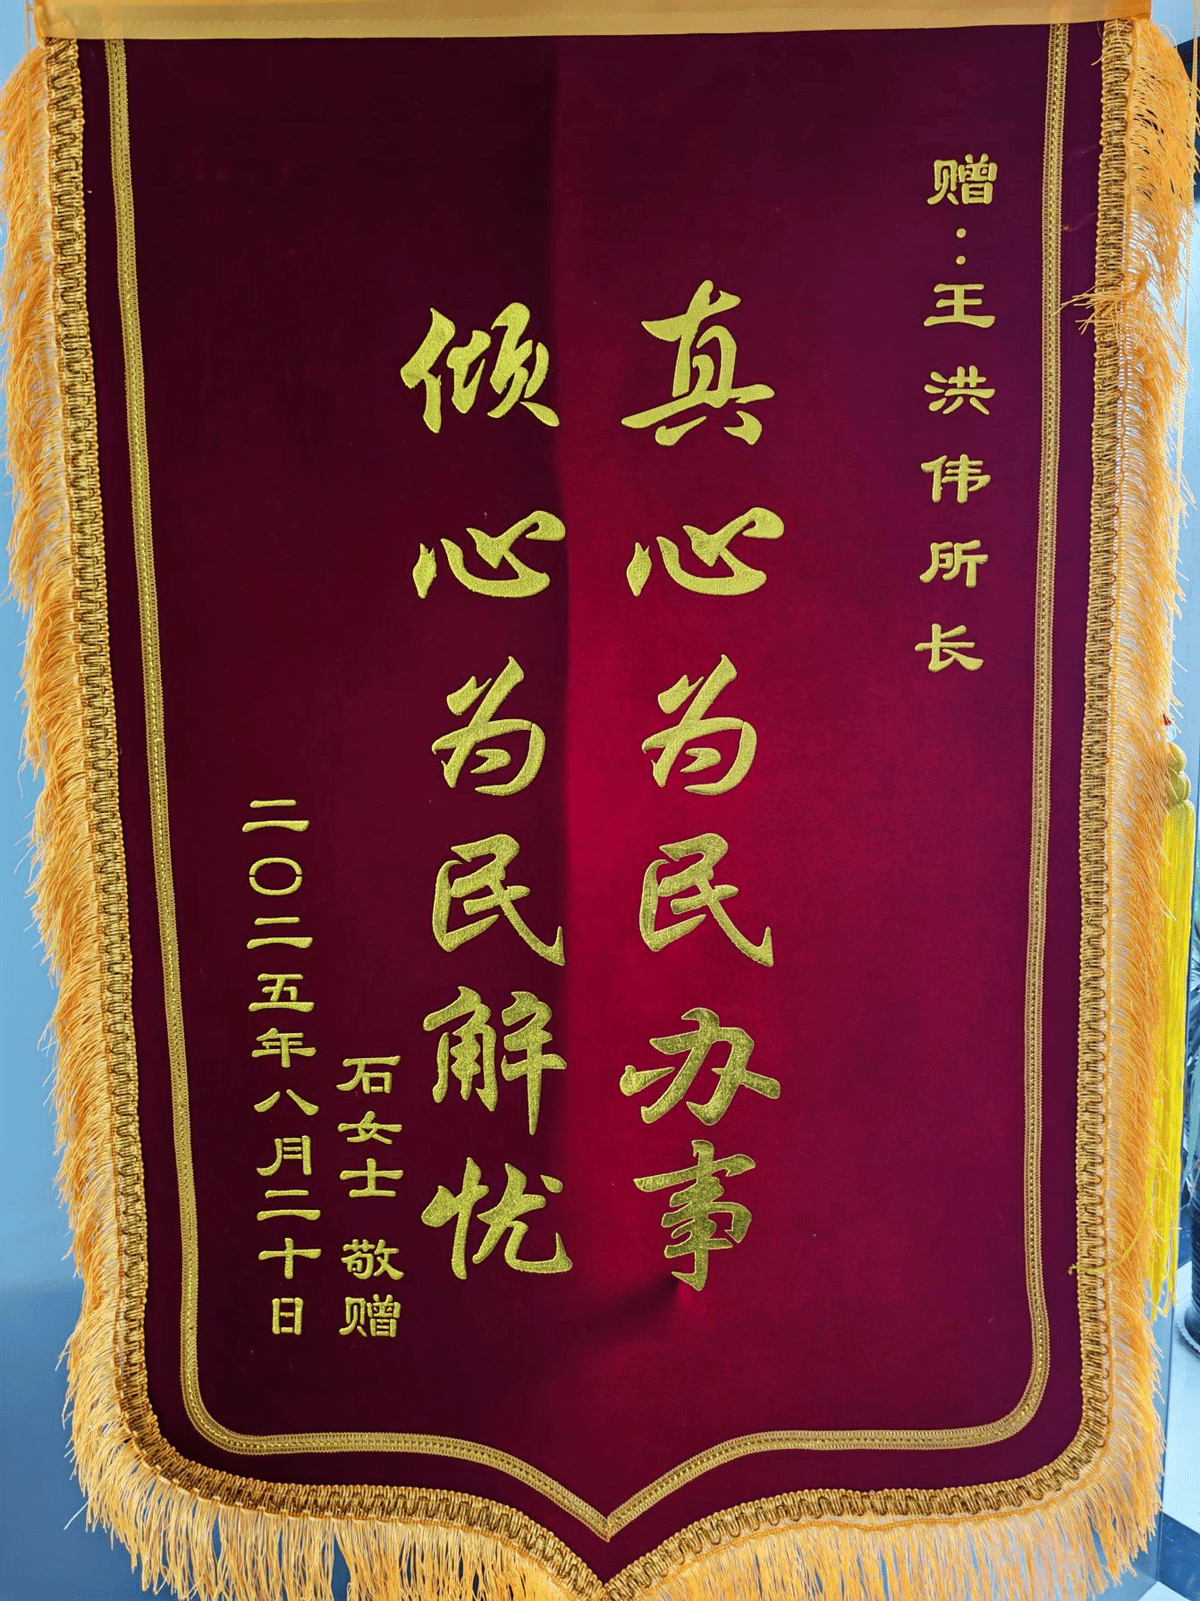 赠:王洪伟所长
真心为民办事
倾心为民解忧
石女士 敬赠
二〇二五年八月二十日